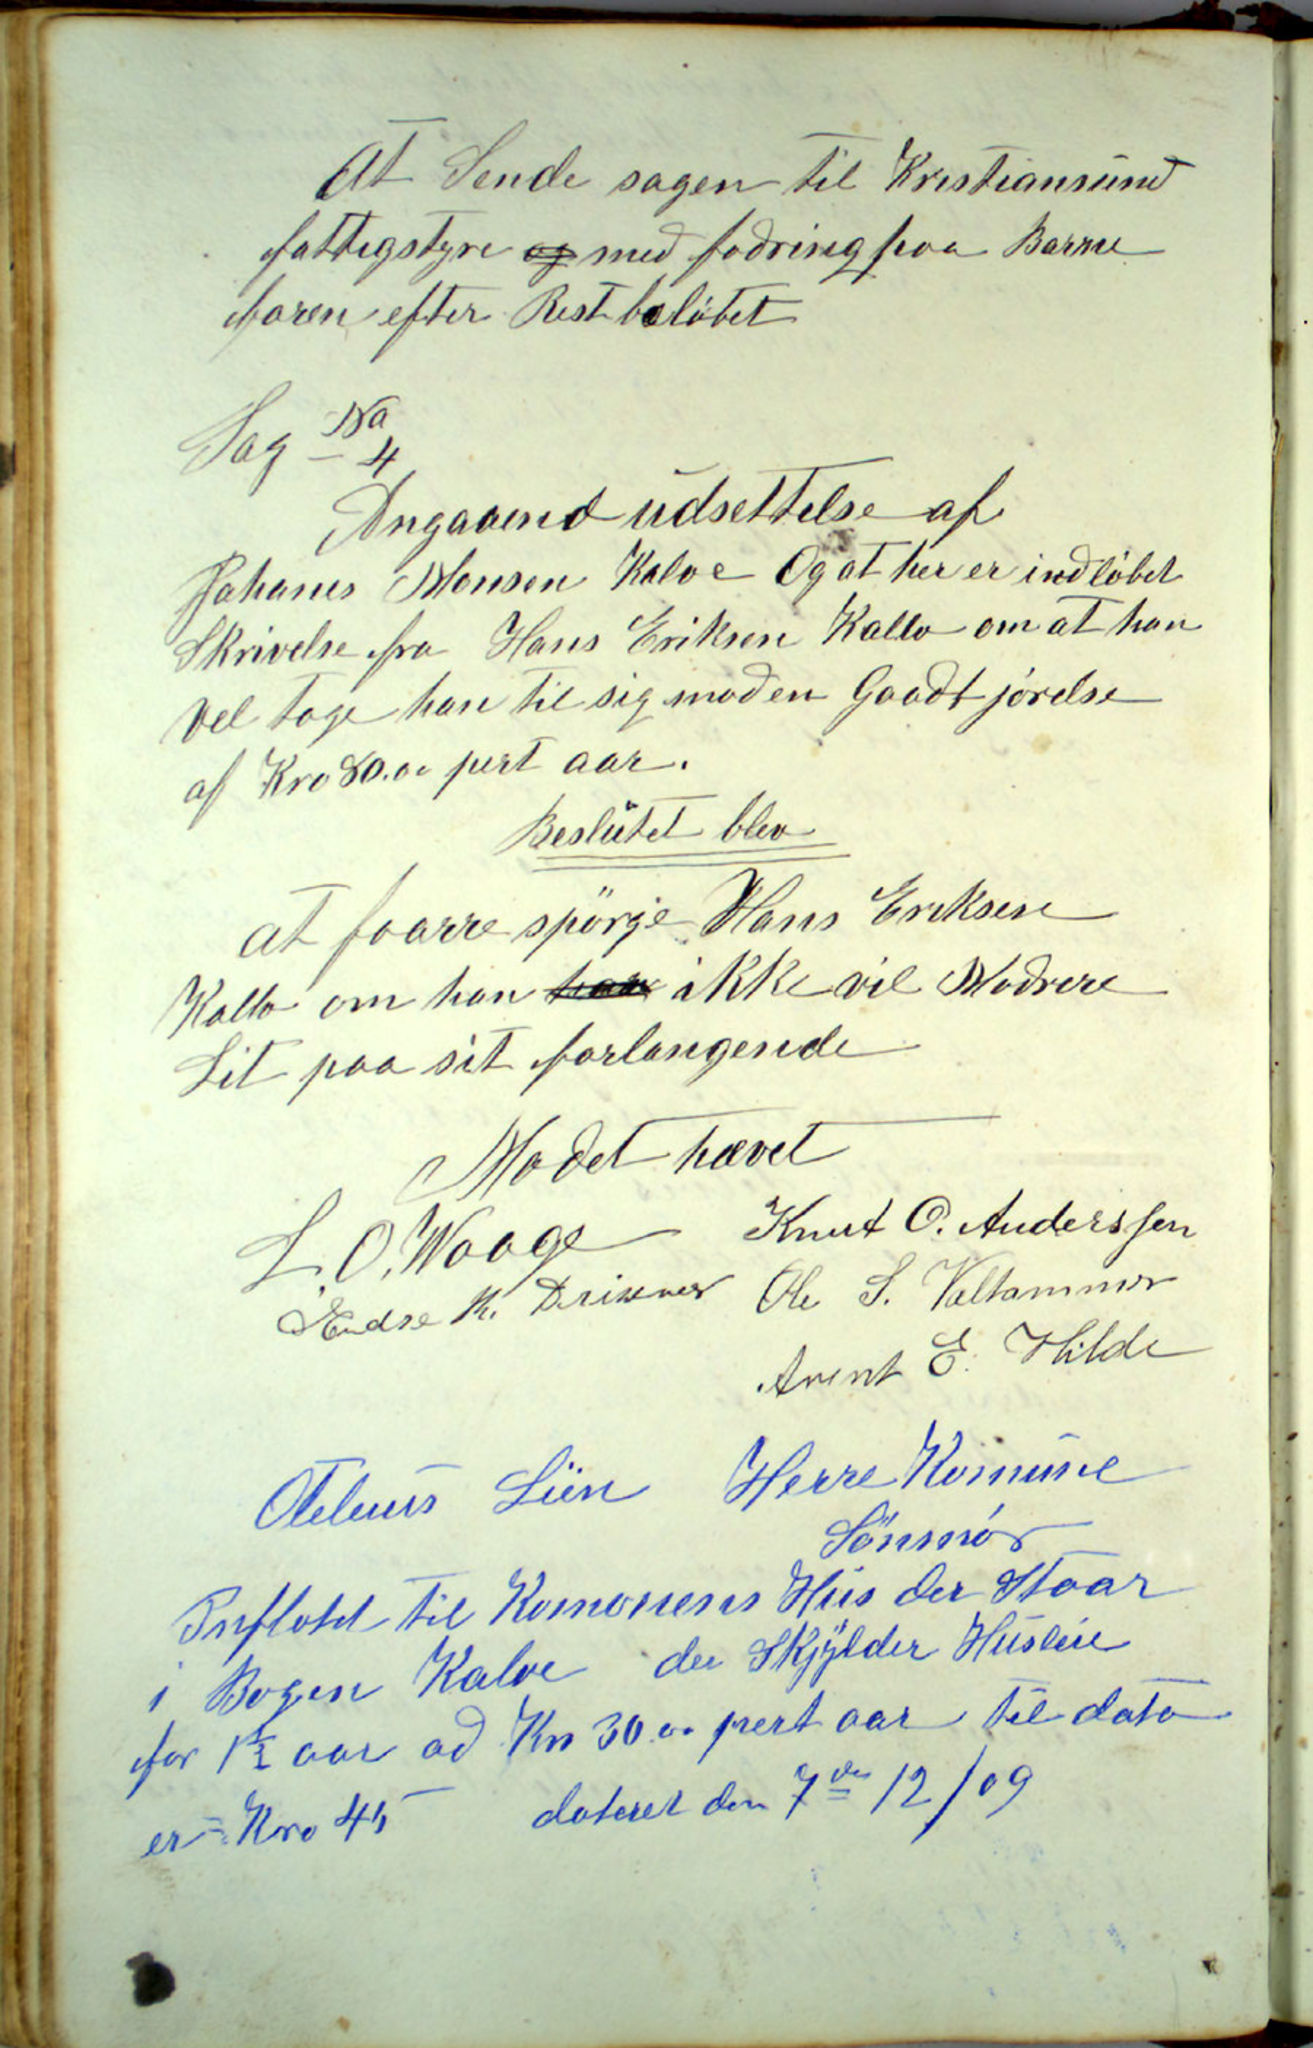 At Sende sagen til Kristiansund
fattigstyre og med fodring paa Barne
faren efter Rest beløbet
Sag No 4
Angaaend udsettelse af
Johanes Monsen Kalve Og at her er indløbet
Skrivelse fra Hans Eriksen Kallo om at han
vel tage han til sig mod en Gaadtjørelse
af Kro 80.00 pert aar.
Beslutet blev
at foarre spörge Hans Eriksen
Kallo om han ikke vil Modrere
Lit paa sit forlangende
Modet hævet
L. O. Waage Knut O. Anderssen
Endse Ole S. Valhammer
Arent E. Hilde
Oteluus Lien Herre Komune
Sönmör
Inflotel til Komonens Hus der Staar
i Bogen Kalve der Skjylder Husleie
for 1½ aar ad Kro 30.00 pert aar til dato
er = Kro 45 dateret den 7de 12/09